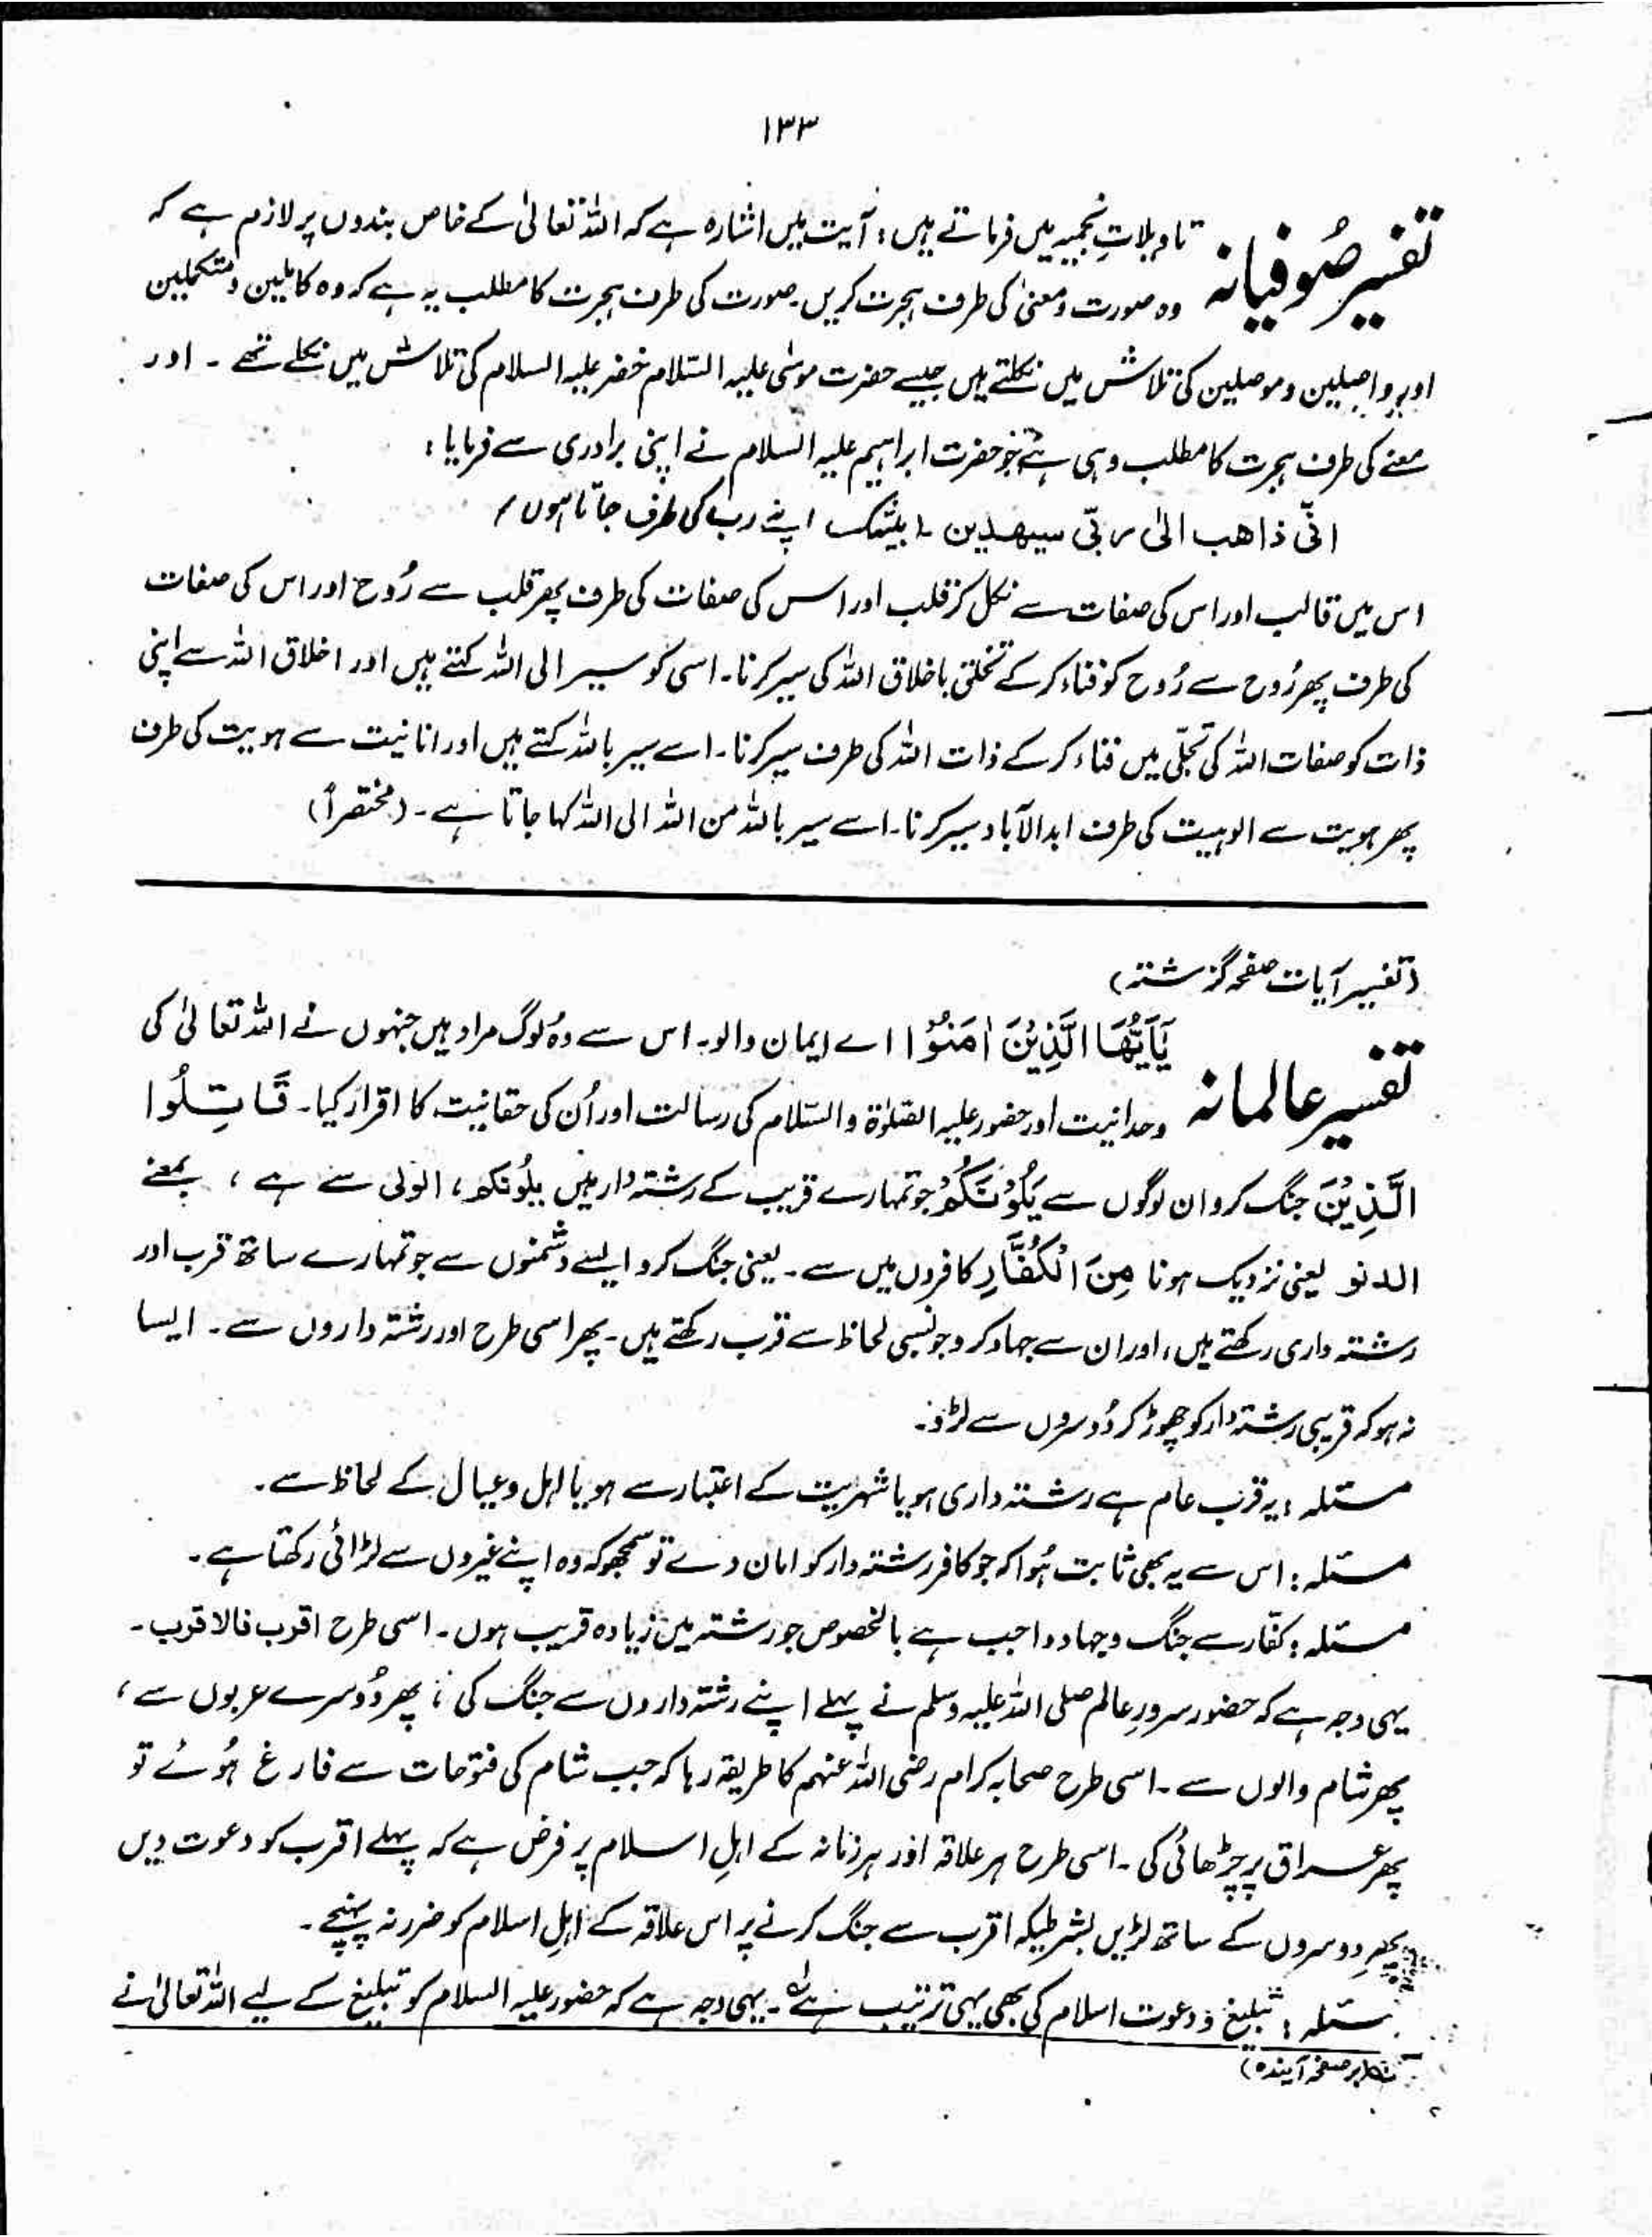 ۱۳۳
تفسیر صُوفیانہ تاویلاتِ نجمیہ میں فرماتے ہیں: آیت میں اشارہ ہے کہ اللہ تعالیٰ کے خاص بندوں پر لازم ہے کہ
وہ صورت و معنیٰ کی طرف ہجرت کریں۔ صورت کی طرف ہجرت کا مطلب یہ ہے کہ وہ کاملین و متکملین
اور واصلین و موصلین کی تلاش میں نکلتے ہیں جیسے حضرت موسیٰ علیہ السّلام خضر علیہ السلام کی تلاش میں نکلے تھے۔ اور
معنے کی طرف ہجرت کا مطلب وہی ہے جو حضرت ابراہیم علیہ السلام نے اپنی برادری سے فرمایا:
انّی ذاھب الیٰ ربّی سیھدین۔ (بیشک اپنے رب کی طرف جاتا ہوں)
اس میں قالب اور اس کی صفات سے نکل کر قلب اور اس کی صفات کی طرف پھر قلب سے رُوح اور اس کی صفات
کی طرف پھر رُوح سے رُوح کو فناء کر کے تخلق باخلاق اللہ کی سیر کرنا۔ اسی کو سیر الی اللہ کہتے ہیں اور اخلاق اللہ سے اپنی
ذات کو صفات اللہ کی تجلّی میں فناء کر کے ذات اللہ کی طرف سیر کرنا۔ اسے سیر باللہ کہتے ہیں اور انانیت سے ہویت کی طرف
پھر ہویت سے الوہیت کی طرف ابدالآباد سیر کرنا۔ اسے سیر باللہ من اللہ الی اللہ کہا جاتا ہے۔ (مختصراً)
(تفسیر آیات صفحہ گزشتہ)
تفسیر عالمانہ يٰٓاَيُّهَا الَّذِيْنَ اٰمَنُوْا اے ایمان والو۔ اس سے وُہ لوگ مراد ہیں جنہوں نے اللہ تعالیٰ کی
وحدانیت اور حضور علیہ الصّلوٰۃ والسّلام کی رسالت اور اُن کی حقانیت کا اقرار کیا۔ قَاتِلُوا
الَّذِيْنَ جنگ کرو ان لوگوں سے يَلُوْنَكُمْ جو تمہارے قریب کے رشتہ دار ہیں یلُونکم، الولی سے ہے، بمعنے
الدنو یعنی نزدیک ہونا مِنَ الْكُفَّارِ کافروں میں سے۔ یعنی جنگ کرو ایسے دشمنوں سے جو تمہارے ساتھ قرب اور
رشتہ داری رکھتے ہیں، اور ان سے جہاد کرو جو نسبی لحاظ سے قرب رکھتے ہیں۔ پھر اسی طرح اور رشتہ داروں سے۔ ایسا
نہ ہو کہ قریبی رشتہ دار کو چھوڑ کر دُوسروں سے لڑو۔
مسئلہ: یہ قرب عام ہے رشتہ داری ہو یا شہریت کے اعتبار سے ہو یا اہل و عیال کے لحاظ سے۔
مسئلہ: اس سے یہ بھی ثابت ہُوا کہ جو کافر رشتہ دار کو امان دے تو سمجھو کہ وہ اپنے غیروں سے لڑائی رکھتا ہے۔
مسئلہ: کفّار سے جنگ و جہاد واجب ہے بالخصوص جو رشتہ میں زیادہ قریب ہوں۔ اسی طرح اقرب فالاقرب۔
یہی وجہ ہے کہ حضور سرورِ عالم صلی اللہ علیہ وسلم نے پہلے اپنے رشتہ داروں سے جنگ کی، پھر دُوسرے عربوں سے،
پھر شام والوں سے۔ اسی طرح صحابہ کرام رضی اللہ عنہم کا طریقہ رہا کہ جب شام کی فتوحات سے فارغ ہُوئے تو
پھر عراق پر چڑھائی کی۔ اسی طرح ہر علاقہ اور ہر زمانہ کے اہلِ اسلام پر فرض ہے کہ پہلے اقرب کو دعوت دیں
پھر دوسروں کے ساتھ لڑیں بشرطیکہ اقرب سے جنگ کرنے پر اس علاقہ کے اہلِ اسلام کو ضرر نہ پہنچے۔
مسئلہ: تبلیغ و دعوت اسلام کی بھی یہی ترتیب ہے۔ یہی وجہ ہے کہ حضور علیہ السلام کو تبلیغ کے لیے اللہ تعالیٰ نے
(بر صفحہ آیندہ)